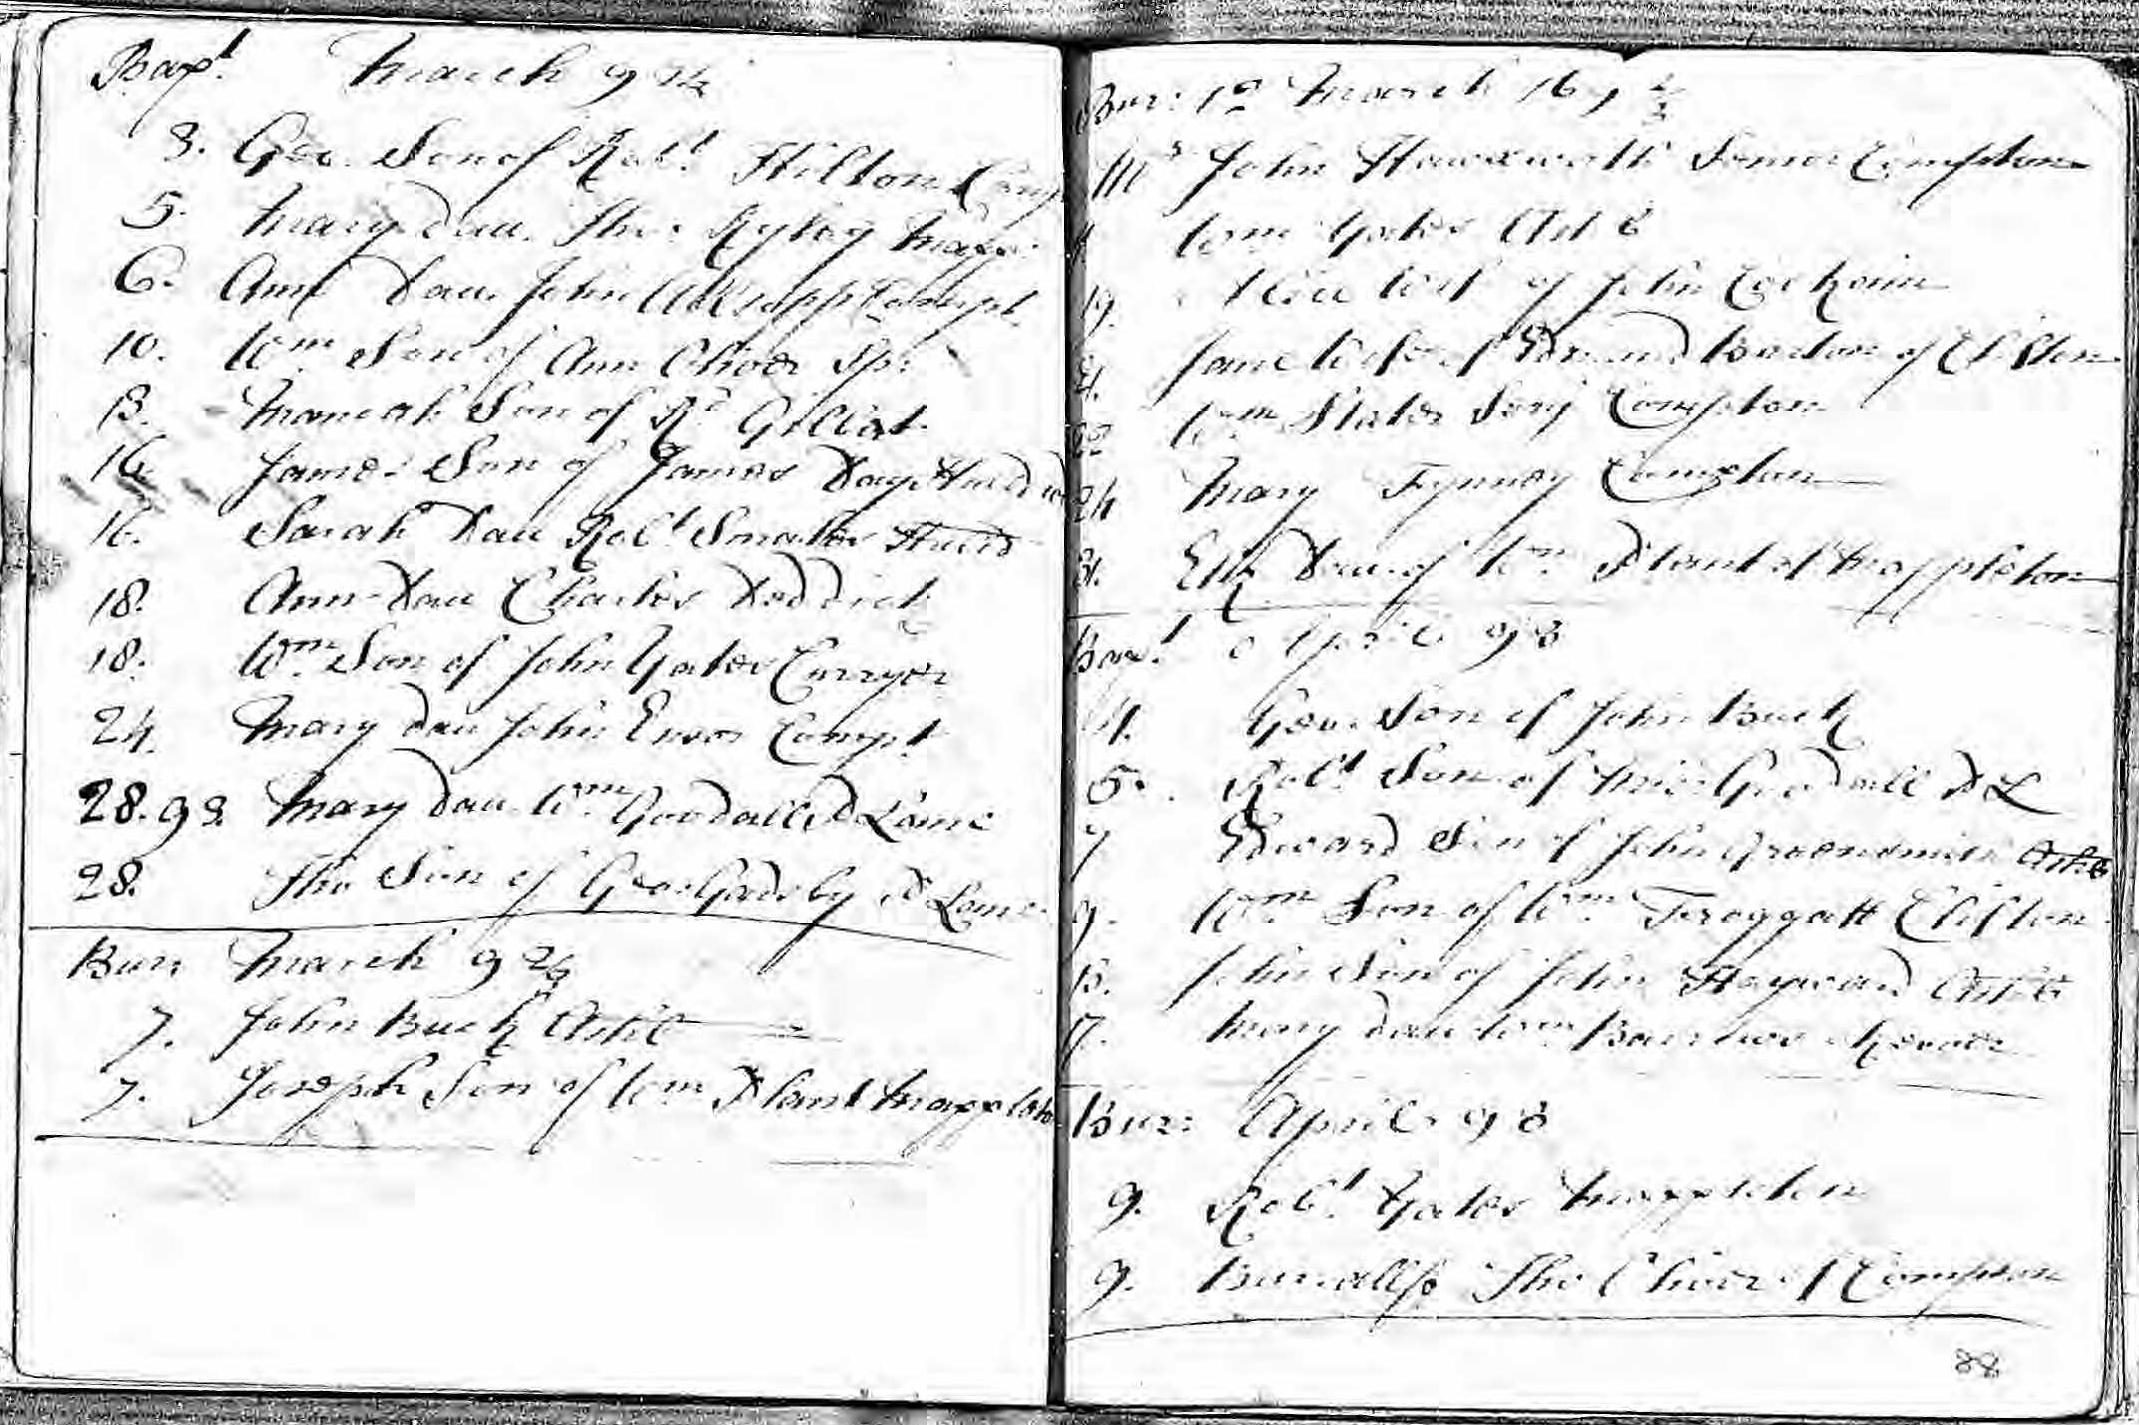 Bapt. March 9 2/3
3. Geo. Son of Robt. Hilton Comp
5. Mary dau. Tho: Ryley Mapp:
6. Ann Dau. John Compt.
10. Wm Son of Ann Oliver Sp:
13. Son of Rd Gilliat
16. James Son of James Day
16. Sarah Dau Robt
18. Ann Dau Charles
18. Wm Son of John Yates Corryer
24. Mary Dau John Ensor Compt
28. 93. Mary Dau. Wm Goodall P Lane
28. Tho Son of Geo Gadsby P Lane
Bur: March 9 2/3
7. John Buck Ashb
7. Joseph Son of Wm Plant Mappleton
Bur: March 169 2/3
Mr John Hawxworth Compton
Wm Yates Ashb
19. Wife of John Cockain
21. Jane Wife of Edmund Barton of Clifton
22 Wm Slater Compton
24 Mary Fynney Compton
31. Eliz Dau. of Wm Plant of Mappleton
Bapt. April 93
4. Geo. Son of John Buck
5. Robt Son of Goodall P L
7 Edward Son of John Greensmith Ashb
9. Wm Son of Wm Froggatt Clifton
13. John Son of John Hayward Ashb
17. Mary Dau Wm Barnes
Bur: April 93
9. Robt. Yates Mappleton
9. Tho Oliver of Compton
88